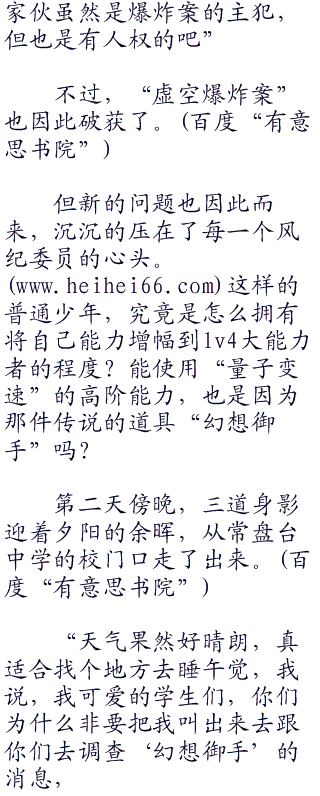 家伙虽然是爆炸案的主犯，
但也是有人权的吧”
不过，“虚空爆炸案”
也因此破获了。(百度“有意
思书院”)
但新的问题也因此而
来，沉沉的压在了每一个风
纪委员的心头。
(www.heihei66.com)这样的
普通少年，究竟是怎么拥有
将自己能力增幅到lv4大能力
者的程度？能使用“量子变
速”的高阶能力，也是因为
那件传说的道具“幻想御
手”吗？
第二天傍晚，三道身影
迎着夕阳的余晖，从常盘台
中学的校门口走了出来。(百
度“有意思书院”)
“天气果然好晴朗，真
适合找个地方去睡午觉，我
说，我可爱的学生们，你们
为什么非要把我叫出来去跟
你们去调查‘幻想御手’的
消息，